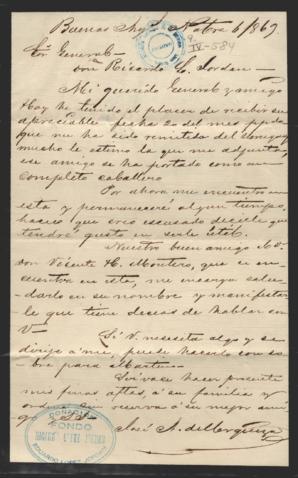 Buenos Ay.s Nobre 6/869
IV-584
Sor General
Don Ricardo L. Jordan
Mi querido General y amigo
Hoy he tenido el placer de recibir su
apreciable fecha 20 del mes ppdo
que me ha sido remitida del
mucho le estimo la que me adjunta
ese amigo se ha portado como un
completo caballero
Por ahora me encuentro en
esta y permaneceré algun tiempo,
creo escusado decirle que
tendré gusto en serle util.
Nuestro buen amigo
Don Vicente H. Montero, que se en
cuentra en esta, me encarga salu
darlo en su nombre y manifestar
le que tiene deseos de hablar con
V
Si V. necesita algo y se
dirije á mi, puede hacerlo con so
bre para
Sirvase hacer presente
mis finas aftas, á su familia y
ordene sin reserva á su mejor ami
go
José A. de
DONACION
FONDO
EDUARDO LOPEZ JORDAN